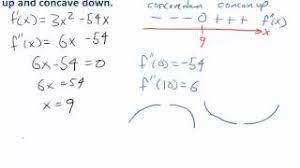 up and concave down.
f'(x) = 3x² - 54x
f"(x) = 6x - 54
6x - 54 = 0
6x = 54
x = 9
concave down concave up
- - - - 0 + + + f"(x)
9 x
f"(0) = -54
f"(10) = 6